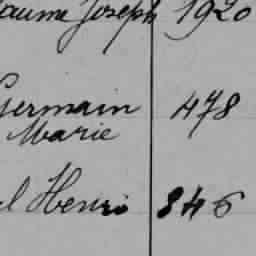 aume Joseph 1920
Germain 478
Marie
l Henri 846